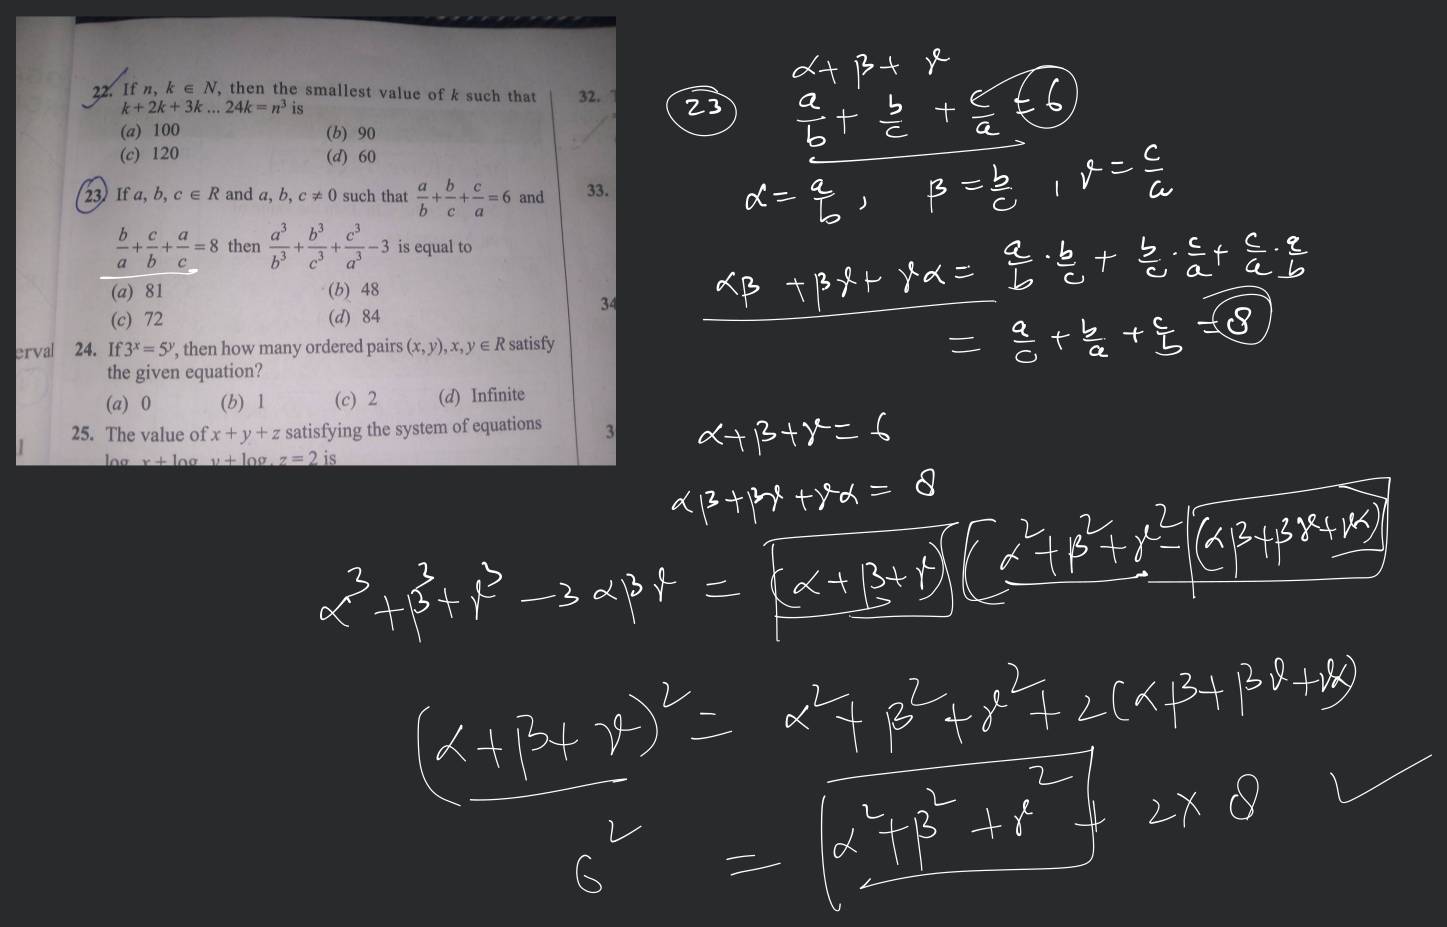 22. If n, k ∈ N, then the smallest value of k such that
k + 2k + 3k ... 24k = n³ is
(a) 100 (b) 90
(c) 120 (d) 60
23. If a, b, c ∈ R and a, b, c ≠ 0 such that a/b + b/c + c/a = 6 and
b/a + c/b + a/c = 8 then a³/b³ + b³/c³ + c³/a³ − 3 is equal to
(a) 81 (b) 48
(c) 72 (d) 84
24. If 3ˣ = 5ʸ, then how many ordered pairs (x, y), x, y ∈ R satisfy
the given equation?
(a) 0 (b) 1 (c) 2 (d) Infinite
25. The value of x + y + z satisfying the system of equations
erval
32.
33.
34
3
23
α + β + γ
a/b + b/c + c/a = 6
α = a/b, β = b/c, γ = c/a
αβ + βγ + γα = a/b · b/c + b/c · c/a + c/a · a/b
= a/c + b/a + c/b = 8
α + β + γ = 6
αβ + βγ + γα = 8
α³ + β³ + γ³ − 3αβγ = (α + β + γ) (α² + β² + γ² − (αβ + βγ + γα)
(α + β + γ)² = α² + β² + γ² + 2(αβ + βγ + γα)
6² = α² + β² + γ² + 2 × 8